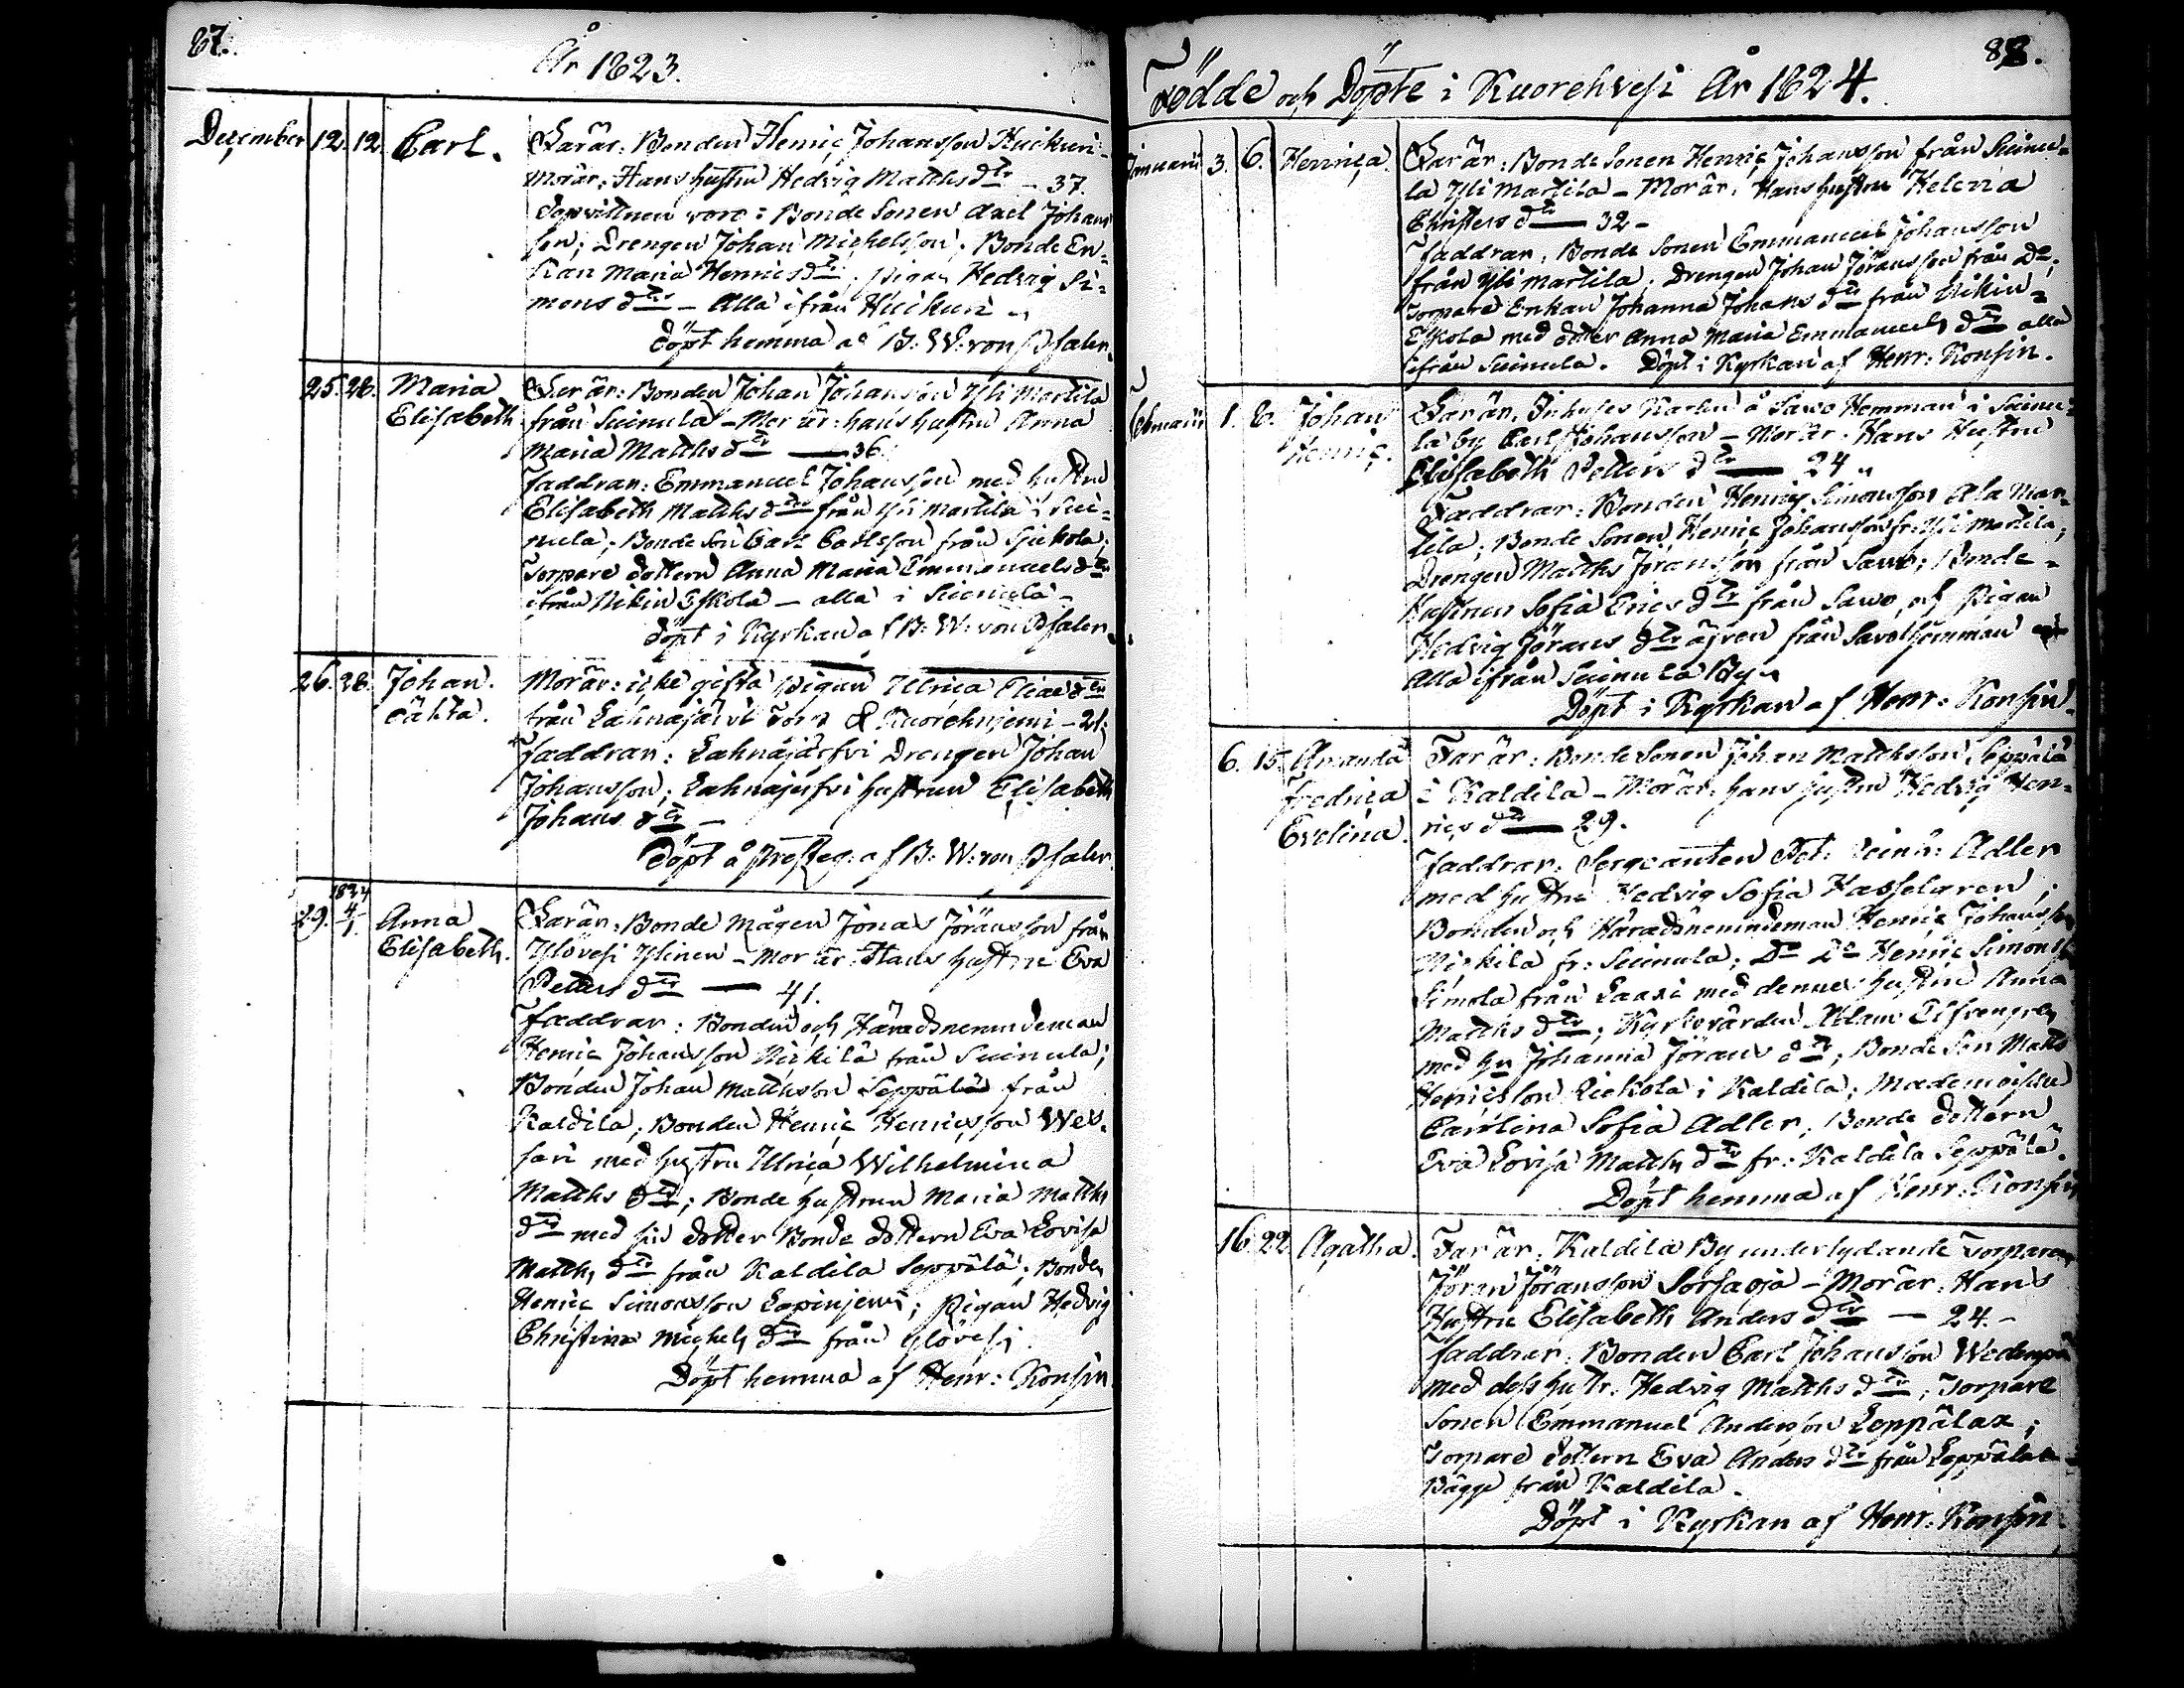 87.
År 1823.
December 12. 12. Carl. Far är: Bonden Henric Johansson Huikuri
Mor är: Hans hustru Hedvig Matths dr — 37.
Dopvittnen voro: Bonde Sonen Axel Johans
son; Drengen Johan Michelsson; Bonde En-
kan Maria Henrics dr; pigan Hedvig Si-
mons dr — Alla ifrån Huikuri
döpt hemma af B: W: von Pfaler.
25. 28. Maria Far är: Bonden Johan Johansson Yli Martila
Elisabeth från Suinula — Mor är: hans hustru Anna
Maria Matths dr — 36.
Faddrar: Emmanuel Johansson med hustru
Elisabeth Matths dr från Yli Martila i Sui-
nula; Bonde Son Carl Carlsson från
Torpare dottern Anna Maria Emmanuels dr
ifrån Nikin Eskola — alla i Suinula —
döpt i Kyrkan af B: W: von Pfaler.
26. 28. Johan. Mor är: icke gifta pigan Ulrica Eliae dr
oäkta. från Lahnajärvi Torp & Kuorehniemi — 21.
Faddrar: Lahnajärfvi Drengen Johan
Johansson; Lahnajärfvi hustrun Elisabeth
Johans dr —
Döpt å Presteg: af B: W: von Pfaler.
1824
29. 4/1. Anna Far är: Bonde Mågen Jonas Jöransson från
Elisabeth. Ylövesi Ylinen — Mor är: Hans hustru Eva
Petters dr — 41.
Faddrar: Bonden och Häradsnemndeman
Henric Johansson Nickilä från Suinula;
Bonden Johan Matthsson Seppälä från
Kaldila; Bonden Henric Henricsson Wes-
sari med hustru Ulrica Wilhelmina
Matths dr; Bonde hustrun Maria Matths
dr med sin dotter Bonde dottern Eva Lovisa
Matths dr från Kaldila Seppälä; Bonden
Henric Simonsson Lapinjemi; Pigan Hedvig
Christina Michels dr från Ylövesi
Döpt hemma af Henr: Konsin
88.
Födde och Döpte i Kuorehvesi År 1824.
Januarii 3. 6. Henrica. Far är: Bonde Sonen Henric Johansson från Suinu-
la Yli Martila — Mor är: Hans hustru Helena
Christers dr — 32 —
Faddrar: Bonde Sonen Emmanuel Johansson
från Yli Martila; Drengen Johan Jöransson från Do;
Torpare Enkan Johanna Johans dr från Nikin-
Eskola med dotter Anna Maria Emmanuels dr alla
ifrån Suinula. Döpt i Kyrkan af Henr: Konsin.
Februarii 1. 8. Johan Far är: Inhyses Karlen å Sawo Hemman i Suinu-
Henric. la by Carl Johansson — Mor är: Hans Hustru
Elisabeth Petters dr — 24
Faddrar: Bonden Henric Simonsson Ala Mar-
tila; Bonde Sonen Henric Johansson fr: Yli Martila;
Drengen Matths Jöransson från Sawo; Bonde-
Hustrun Sofia Erics dr från Sawo och Pigan
Hedvig Jörans dr äfven från Savo Hemman
Alla ifrån Suinula By
Döpt i Kyrkan af Henr: Konsin.
6. 15. Amanda Far är: Bonde Sonen Johan Matthsson Seppälä
Fredrica i Kaldila — Mor är: hans hustru Hedvig Hen-
Evelina. rics dr — 29.
Faddrar: Sergeanten Adler
med hustru Hedvig Sofia Hasselgren;
Bonden och Häradsnemndeman Henric Johansson
Nickila fr: Suinula; Do Do Henric Simonss
Simola från Laasi med dennes hustru Anna
Matths dr; Kyrkovärden Adam Elfvengren
med hu Johanna Jörans dr; Bonde Son Matts
Henricsson Liekola i Kaldila; Mademoisell
Carolina Sofia Adler; Bonde dottern
Eva Lovisa Matths dr fr: Kaldila Seppälä.
Döpt hemma af Henr: Konsin
16. 22. Agatha. Far är: Kaldila By underlydande Torparen
Jöran Jöransson Sorsaoja — Mor är: Hans
Hustru Elisabeth Anders dr — 24. —
Faddrar: Bonden Carl Johansson
med dess hustr. Hedvig Matths dr; Torpare
Sonen Emmanuel Andersson Leppälax;
Torpare dottern Eva Anders dr från Leppälax
Bägge från Kaldila.
Döpt i Kyrkan af Henr: Konsin.